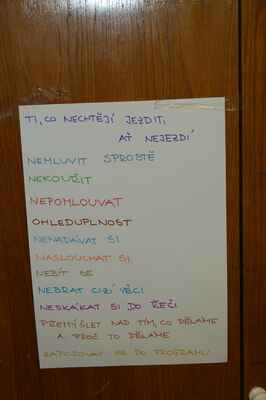 TI, CO NECHTĚJÍ JEZDIT,
AŤ NEJEZDÍ
NEMLUVIT SPROSTĚ
NEKOUŘIT
NEPOMLOUVAT
OHLEDUPLNOST
NENADÁVAT SI
NASLOUCHAT SI
NEBÍT SE
NEBRAT CIZÍ VĚCI
NESKÁKAT SI DO ŘEČI
PŘEMÝŠLET NAD TÍM, CO DĚLÁME
A PROČ TO DĚLÁME
ZAPOJOVAT SE DO PROGRAMU